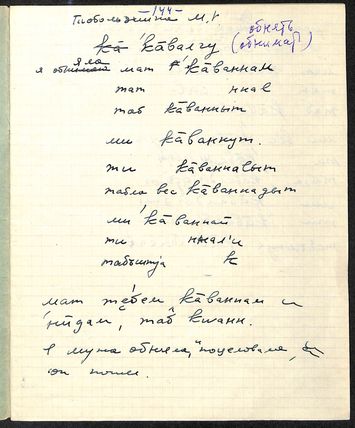 -144-
М.Г.
ка́ ка̄валгу обнять
(обнимат)
я обняла мат ка̄ваннам
тат ннал
таб ка̄ванныт
ми ка̄ваннут.
ти ка̄ваннаlыт
табла вес ка̄ваннадыт
ми ка̄ваннай
ти ннал'и
к
мат тебем ка̄ваннам и
нйдам, таб кwанн.
я мужа обняла, поцеловала,
он пошел.